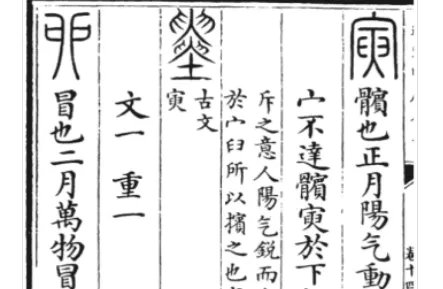 卷十四
寅 髕也正月陽气動
宀不達髕寅於下
斥之意人陽气銳而
於宀臼所以擯之也
古文
寅
文一 重一
丣 冒也二月萬物冒